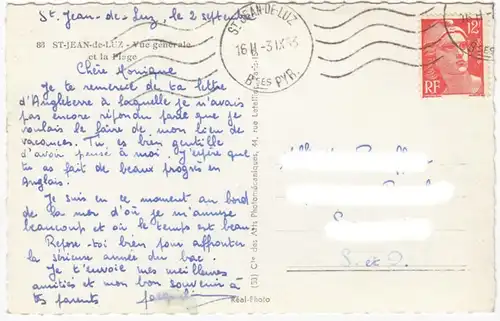 St. Jean-de-Luz, le 2 septembre
80 ST-JEAN-de-LUZ - Vue générale
et la Plage
Chère Monique
Je te remercie de ta lettre
d'Angleterre à laquelle je n'avais
pas encore répondu parce que je
voulais le faire de mon lieu de
vacances. Tu es bien gentille
d'avoir pensé à moi. J'espère que
tu as fait de beaux progrès en
Anglais.
Je suis en ce moment au bord
de la mer d'où je m'amuse
beaucoup et où le temps est beau
Repose-toi bien pour affronter
la sérieuse année du bac.
Je t'envoie mes meilleures
amitiés et mon bon souvenir à
tes parents
Réal-Photo
(53) Cie des Arts Photomécaniques, 44, rue Letellier
ST-JEAN-DE-LUZ
16H -3 IX
BSES PYR.
16H
12F
RF
S. et O.